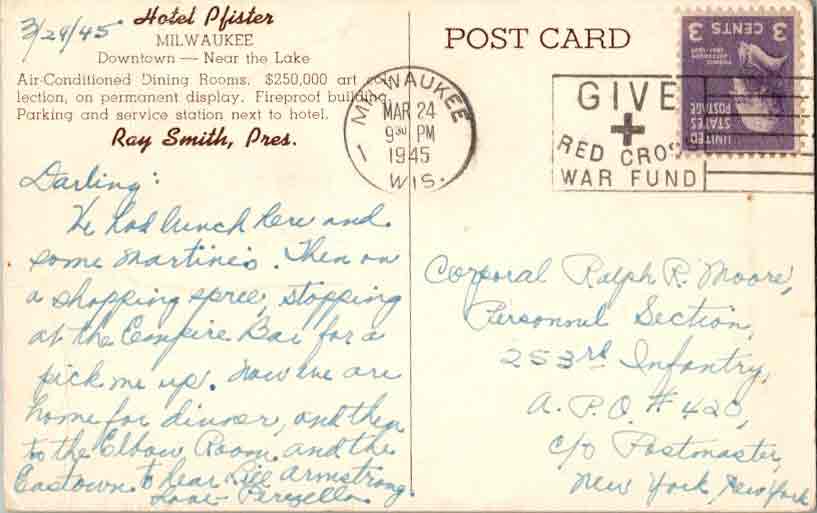 3/24/45
Hotel Pfister
MILWAUKEE
Downtown — Near the Lake
Air-Conditioned Dining Rooms. $250,000 art col-
lection, on permanent display. Fireproof building.
Parking and service station next to hotel.
Ray Smith, Pres.
Darling:
We had lunch here and
some martinis. Then on
a shopping spree, stopping
at the Empire Bar for a
pick me up. Now we are
home for dinner, and then
to the Elbow Room and the
Eastown to hear Armstrong.
Love -
POST CARD
MILWAUKEE
MAR 24
9 30 PM
1945
WIS.
1
GIVE
RED CROSS
WAR FUND
UNITED
STATES
POSTAGE
3 CENTS 3
Corporal Ralph R. Moore,
Personnel Section,
253rd Infantry,
A.P.O. # 420,
c/o Postmaster,
New York, New York